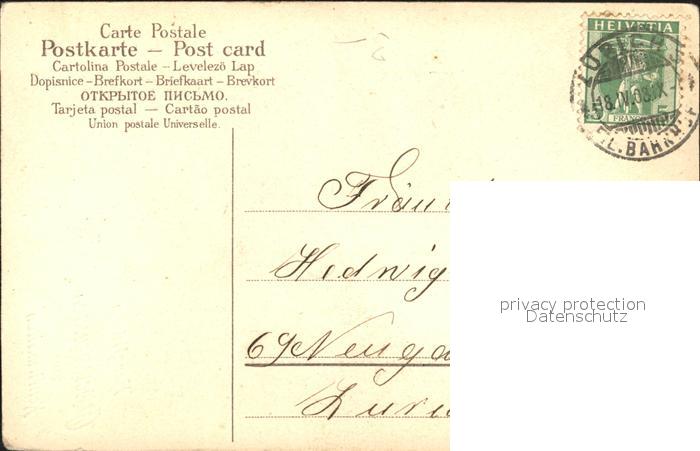 Carte Postale
Postkarte – Post card
Cartolina Postale – Levelező Lap
Dopisnice – Brefkort – Briefkaart – Brevkort
ОТКРЫТОЕ ПИСЬМО.
Tarjeta postal — Cartão postal
Union postale Universelle.
HELVETIA
FRANCO 5
Hedwig
69
privacy protection
Datenschutz